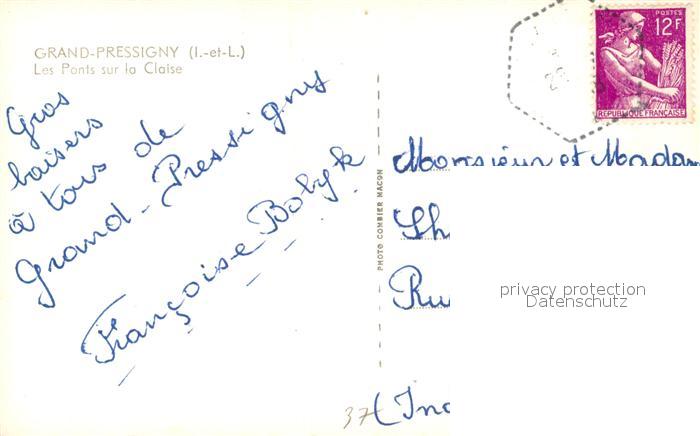 GRAND-PRESSIGNY (I.-et-L.)
Les Ponts sur la Claise
Gros
baisers
à tous de
Grand-Pressigny
Françoise Bobyk
PHOTO COMBIER MACON
POSTES
12F
REPUBLIQUE FRANÇAISE
Monsieur et Madam
Sh
Ru
privacy protection
Datenschutz
37 (Ind